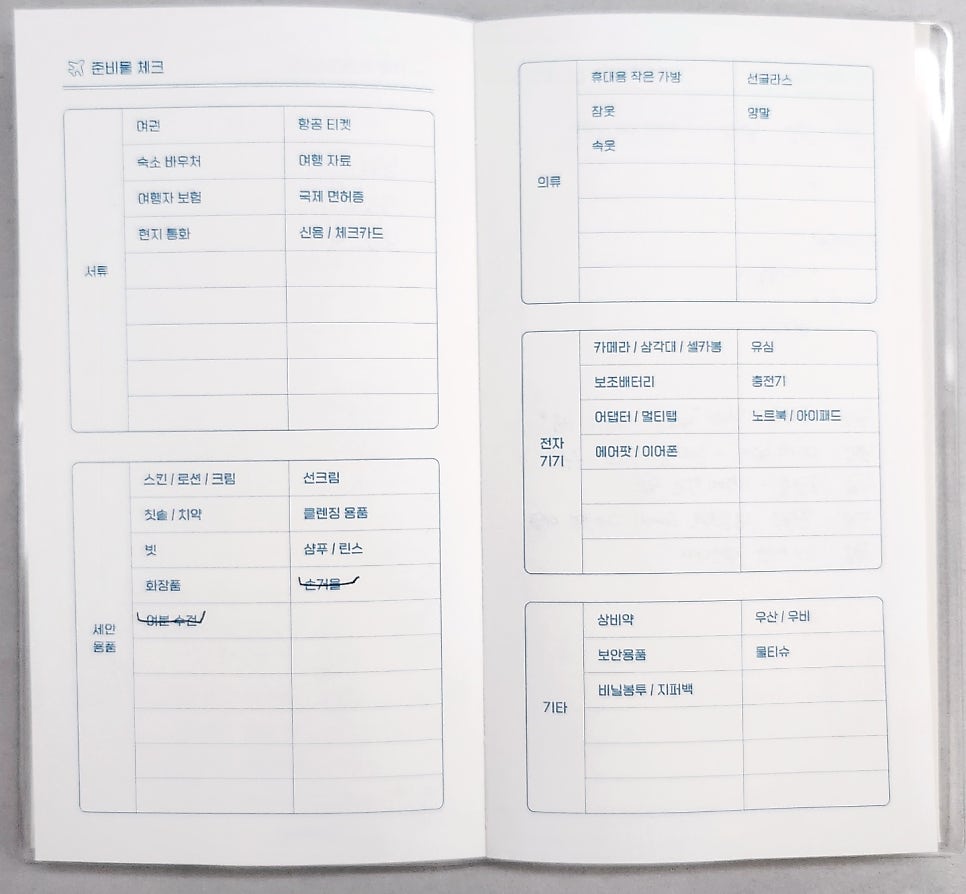 준비물 체크
서류
여권 항공 티켓
숙소 바우처 여행 자료
여행자 보험 국제 면허증
현지 통화 신용 / 체크카드
세안
용품
스킨 / 로션 / 크림 선크림
칫솔 / 치약 클렌징 용품
빗 샴푸 / 린스
화장품 손거울
여분 수건
의류
휴대용 작은 가방 선글라스
잠옷 양말
속옷
전자
기기
카메라 / 삼각대 / 셀카봉 유심
보조배터리 충전기
어댑터 / 멀티탭 노트북 / 아이패드
에어팟 / 이어폰
기타
상비약 우산 / 우비
보안용품 물티슈
비닐봉투 / 지퍼백